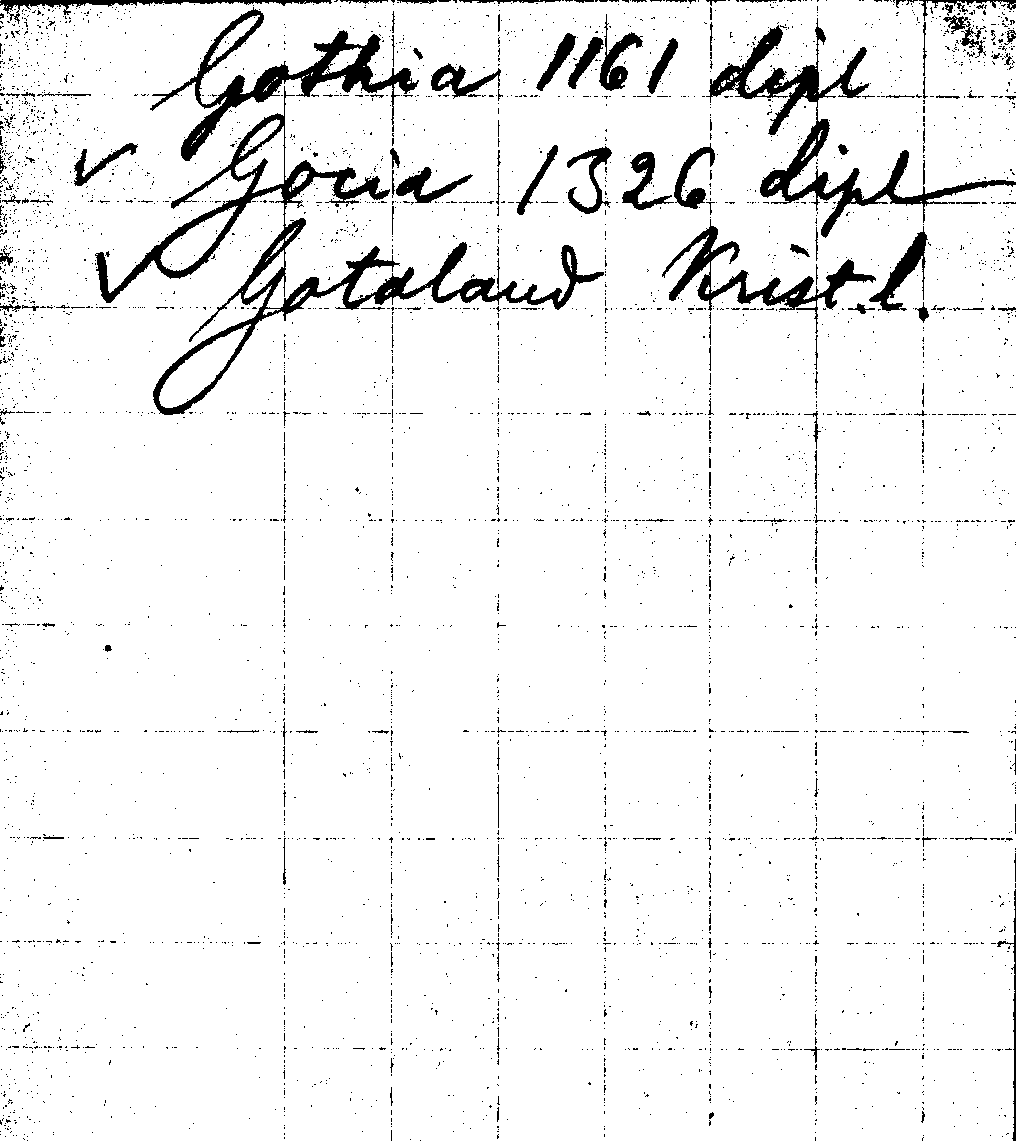 Gothia 1161 dipl
✓ Gocia 1326 dipl
✓ Gotaland Krist. l.